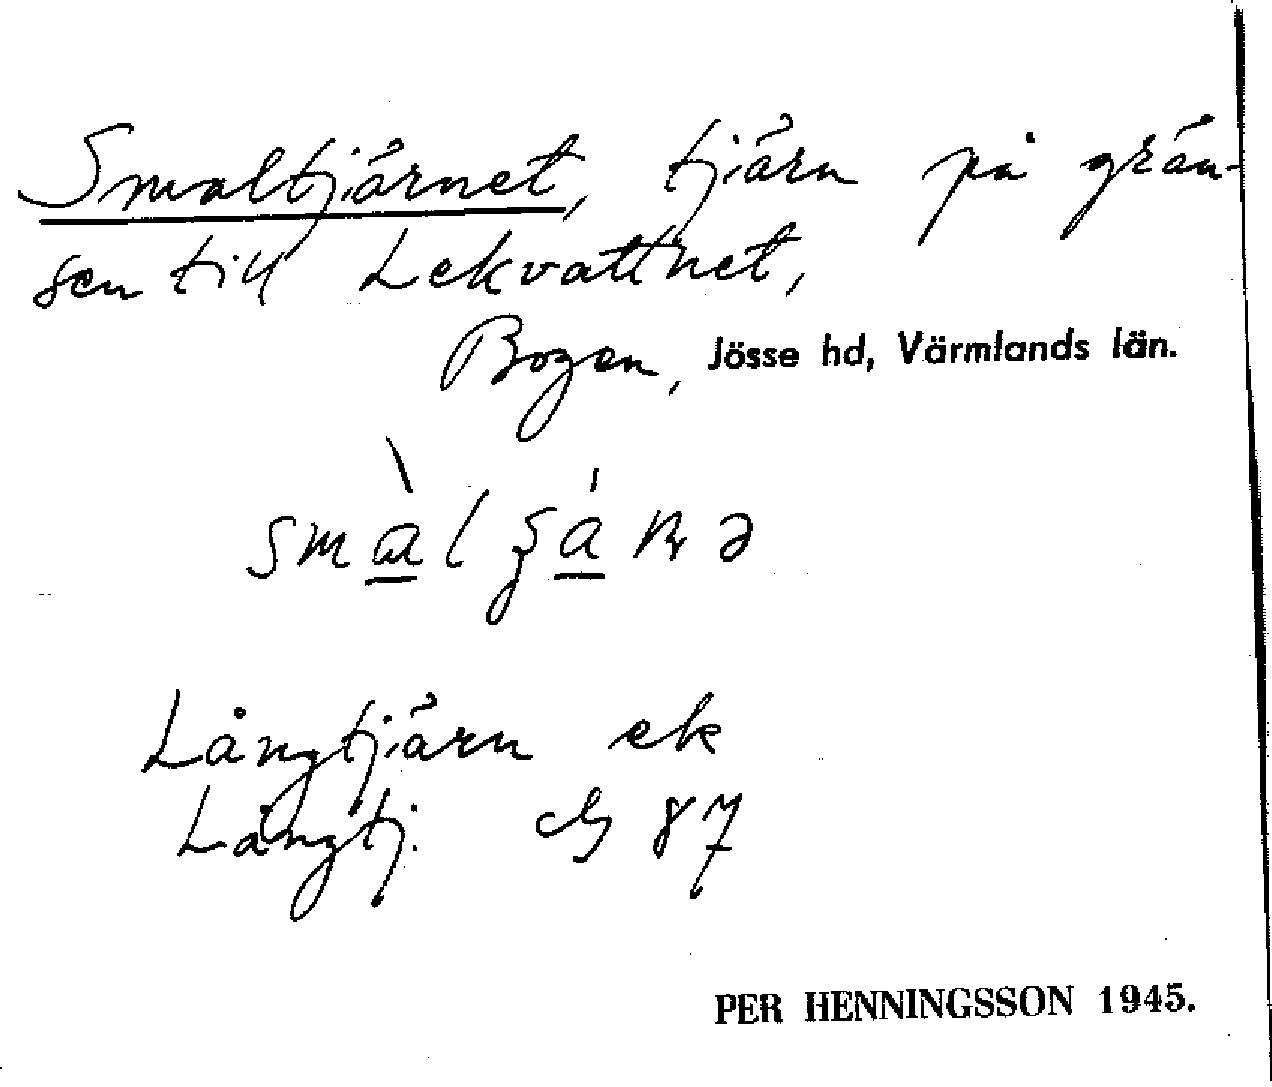 Smaltjärnet, tjärn på grän-
sen till Lekvattnet,
Bogen, Jösse hd, Värmlands län.
Långtjärn ek
Långtj. G 87
PER HENNINGSSON 1945.